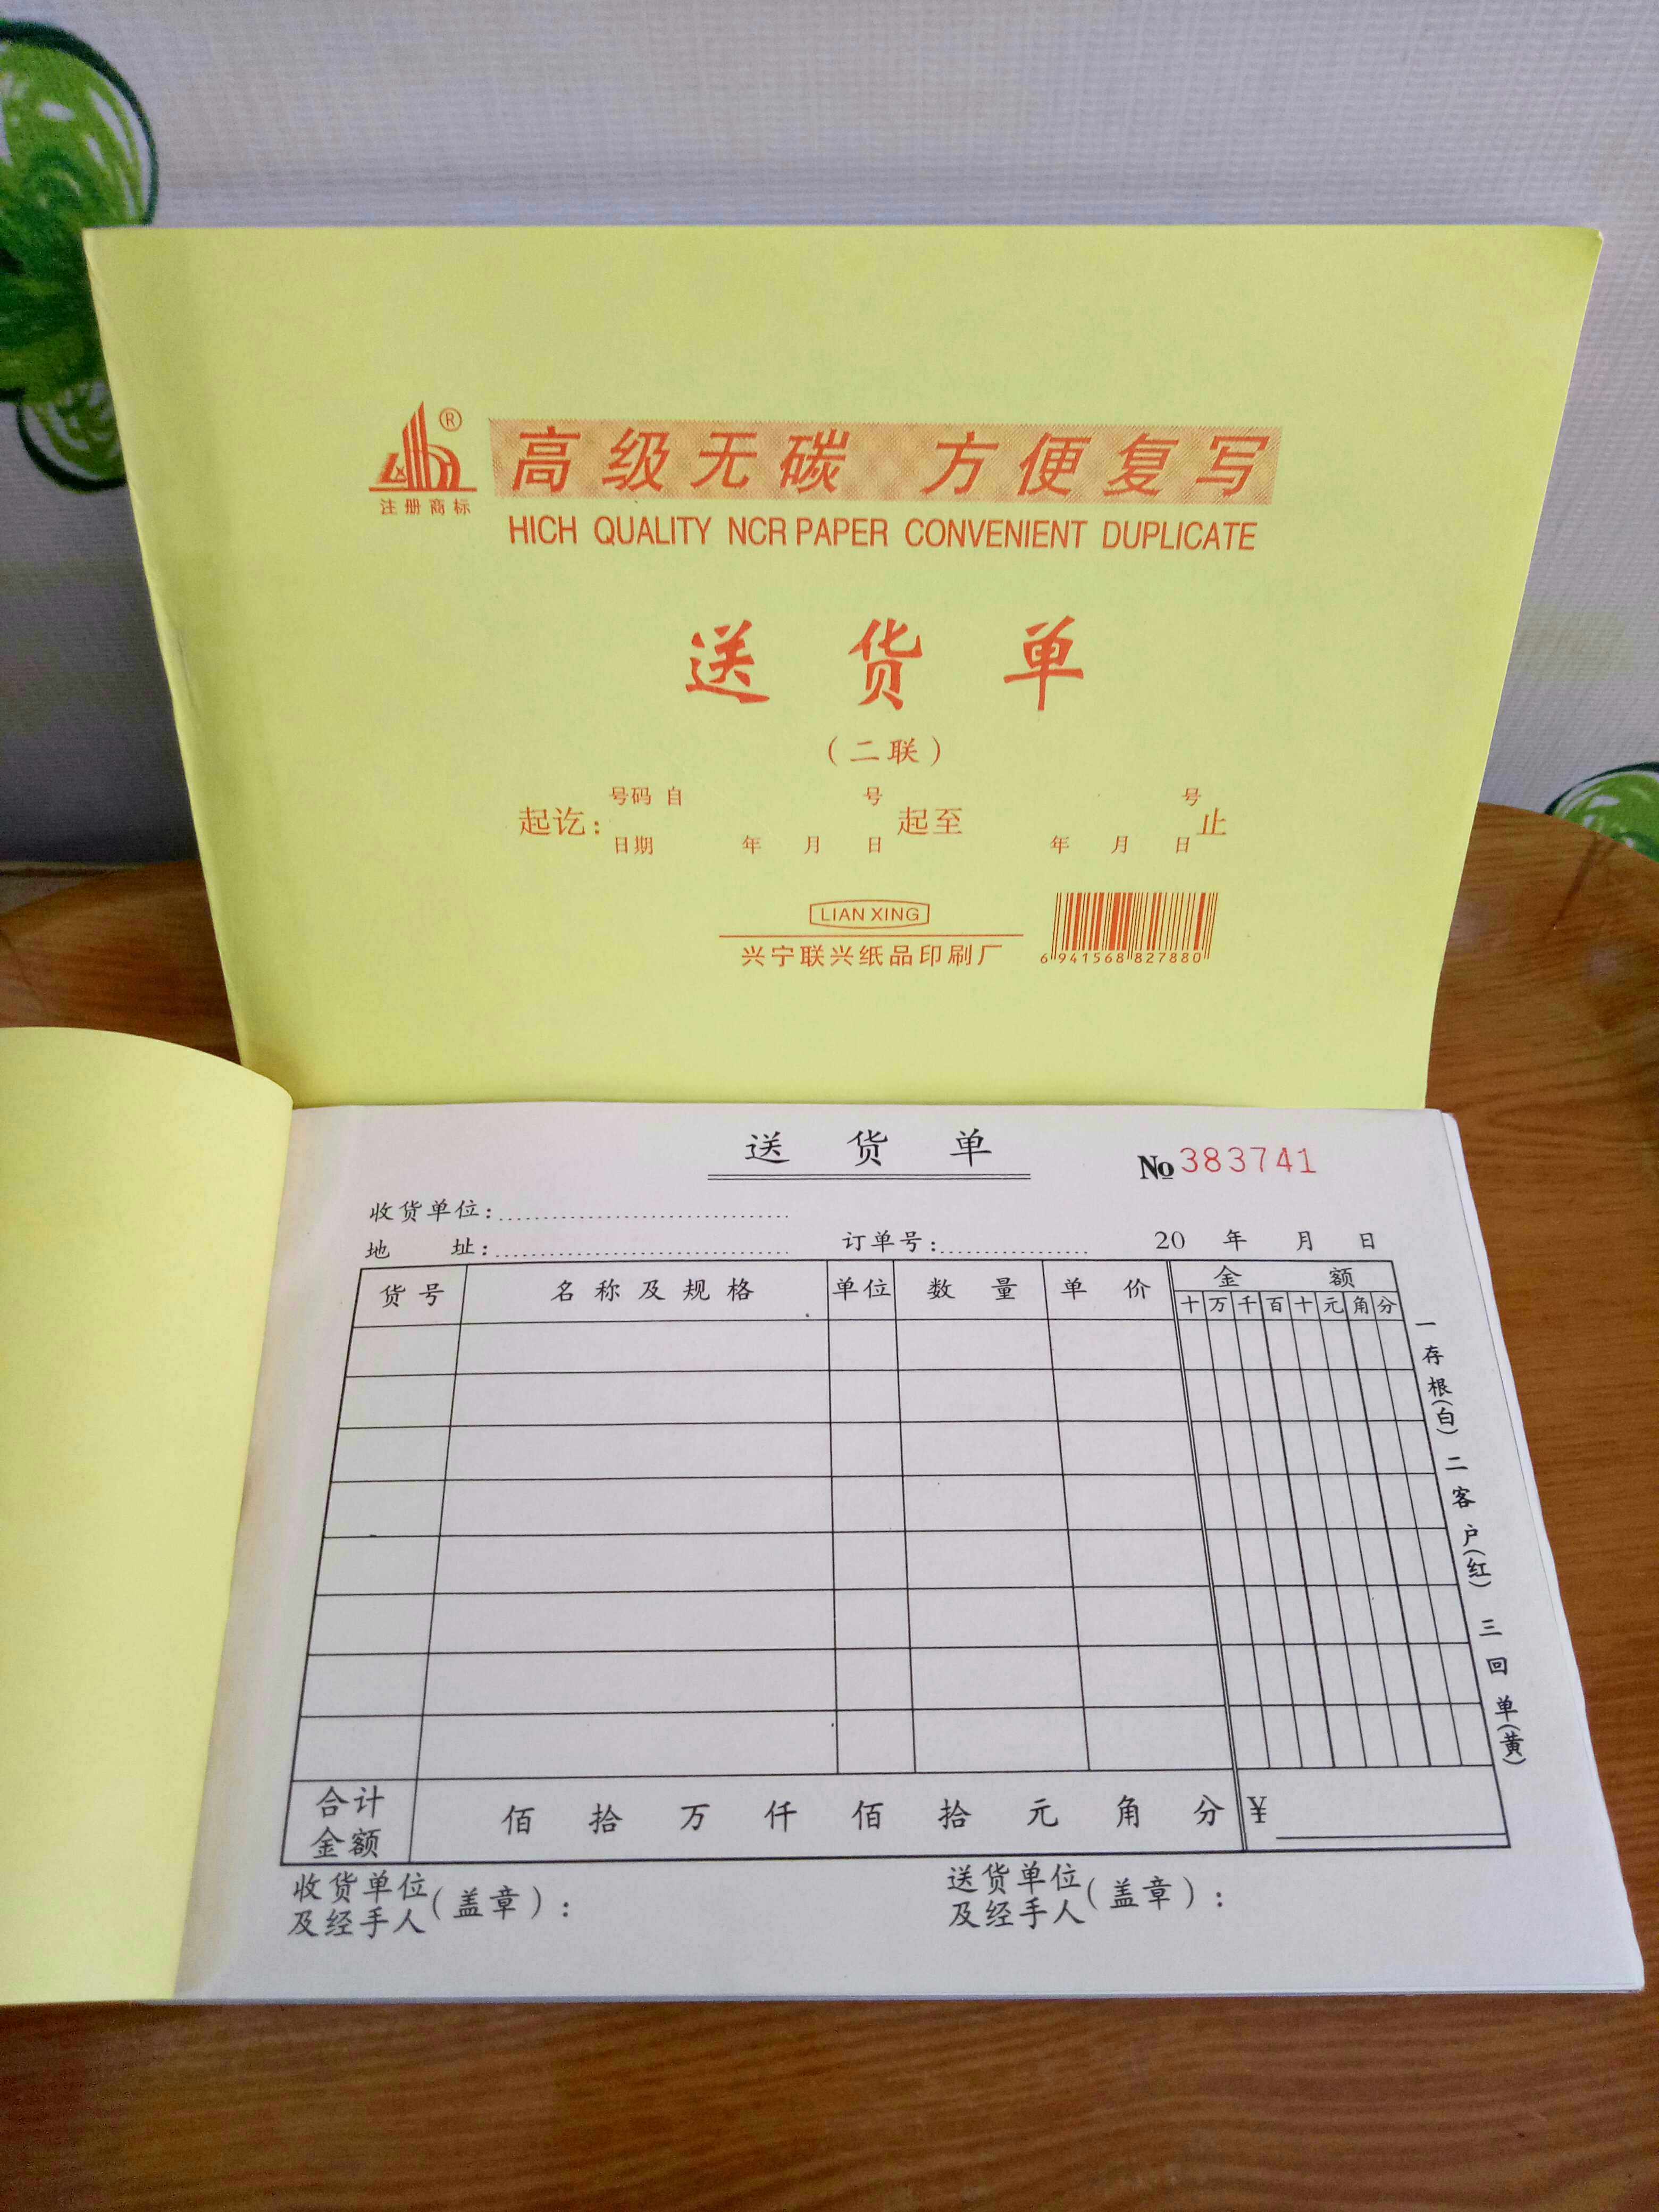 ®
注册商标
高级无碳 方便复写
HICH QUALITY NCR PAPER CONVENIENT DUPLICATE
送货单
（二联）
起讫：号码自 号起至 号止
日期 年 月 日 年 月 日
LIAN XING
兴宁联兴纸品印刷厂
6 941568 827880
送货单
№ 383741
收货单位：
地 址： 订单号： 20 年 月 日
货号 名称及规格 单位 数量 单价 金额
十 万 千 百 十 元 角 分
一存根(白) 二客户(红) 三回单(黄)
合计金额 佰 拾 万 仟 佰 拾 元 角 分 ¥
收货单位及经手人（盖章）： 送货单位及经手人（盖章）：